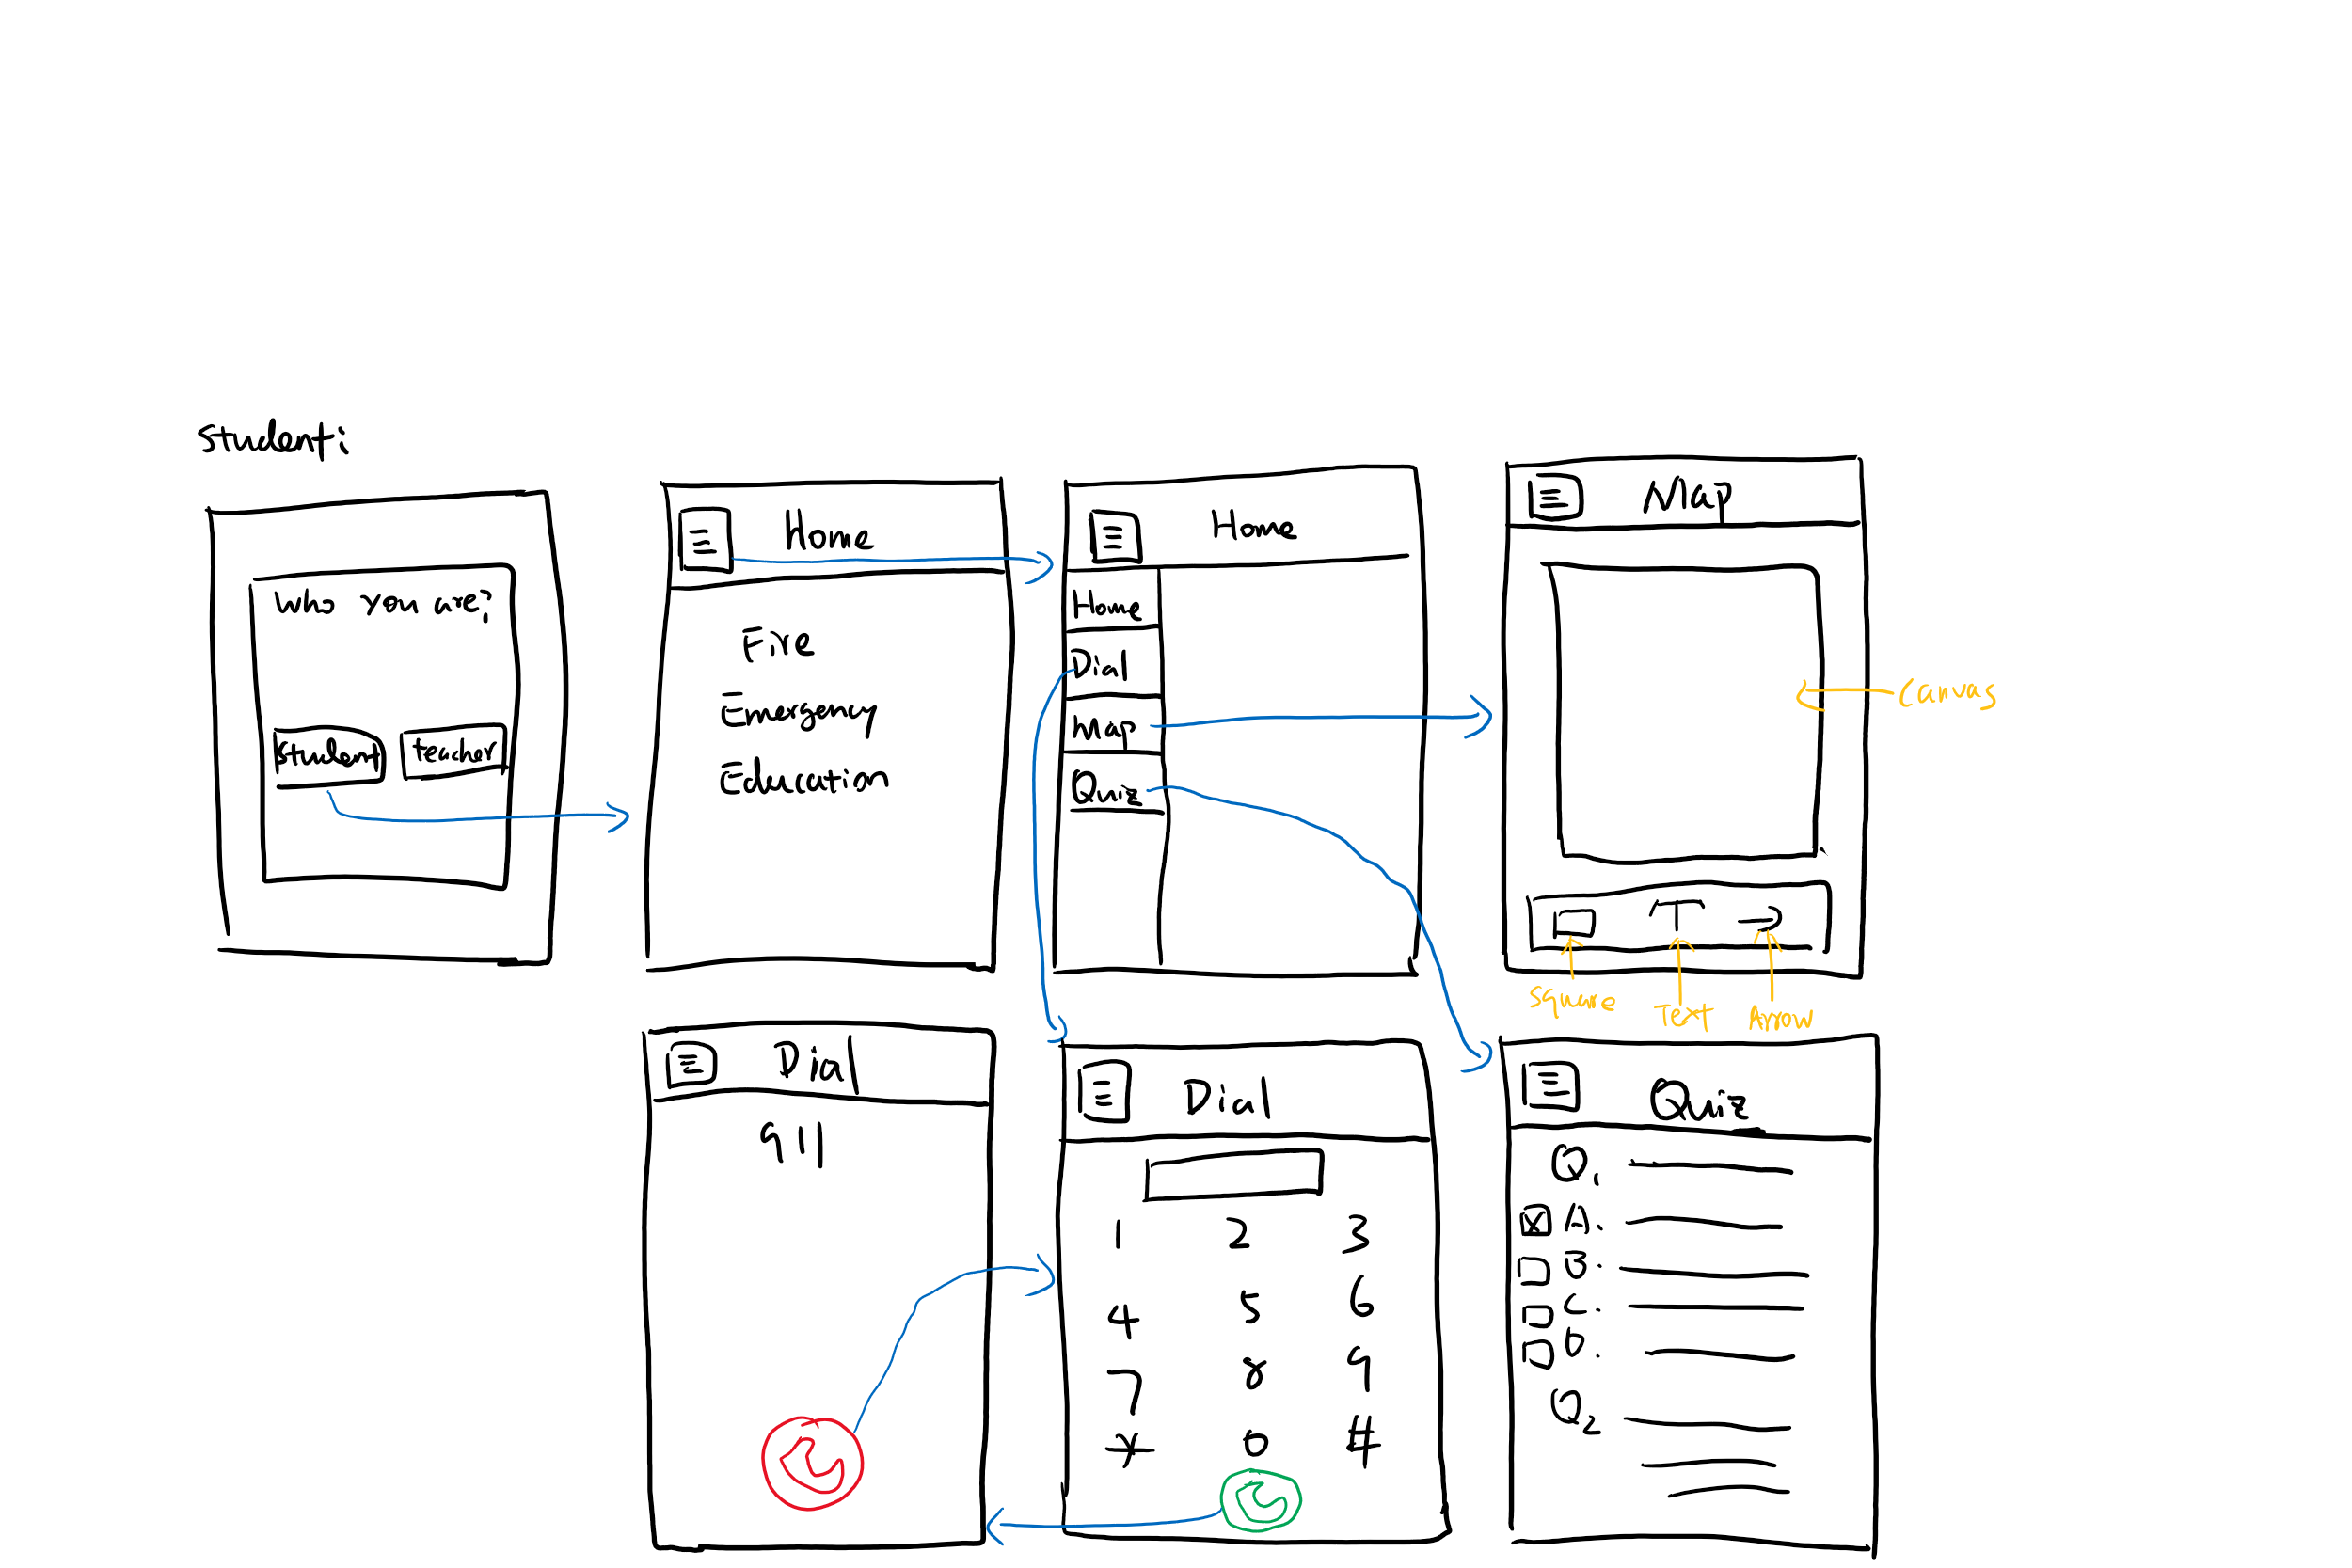 Student:
Who you are?
Student
teacher
Home
File
Emergency
Education
Home
Home
Dial
Map
Quiz
Map
Canvas
Square
Text
Arrow
Dial
911
Dial
1 2 3
4 5 6
7 8 9
* 0 #
Quiz
Q1
A.
B.
C.
D.
Q2